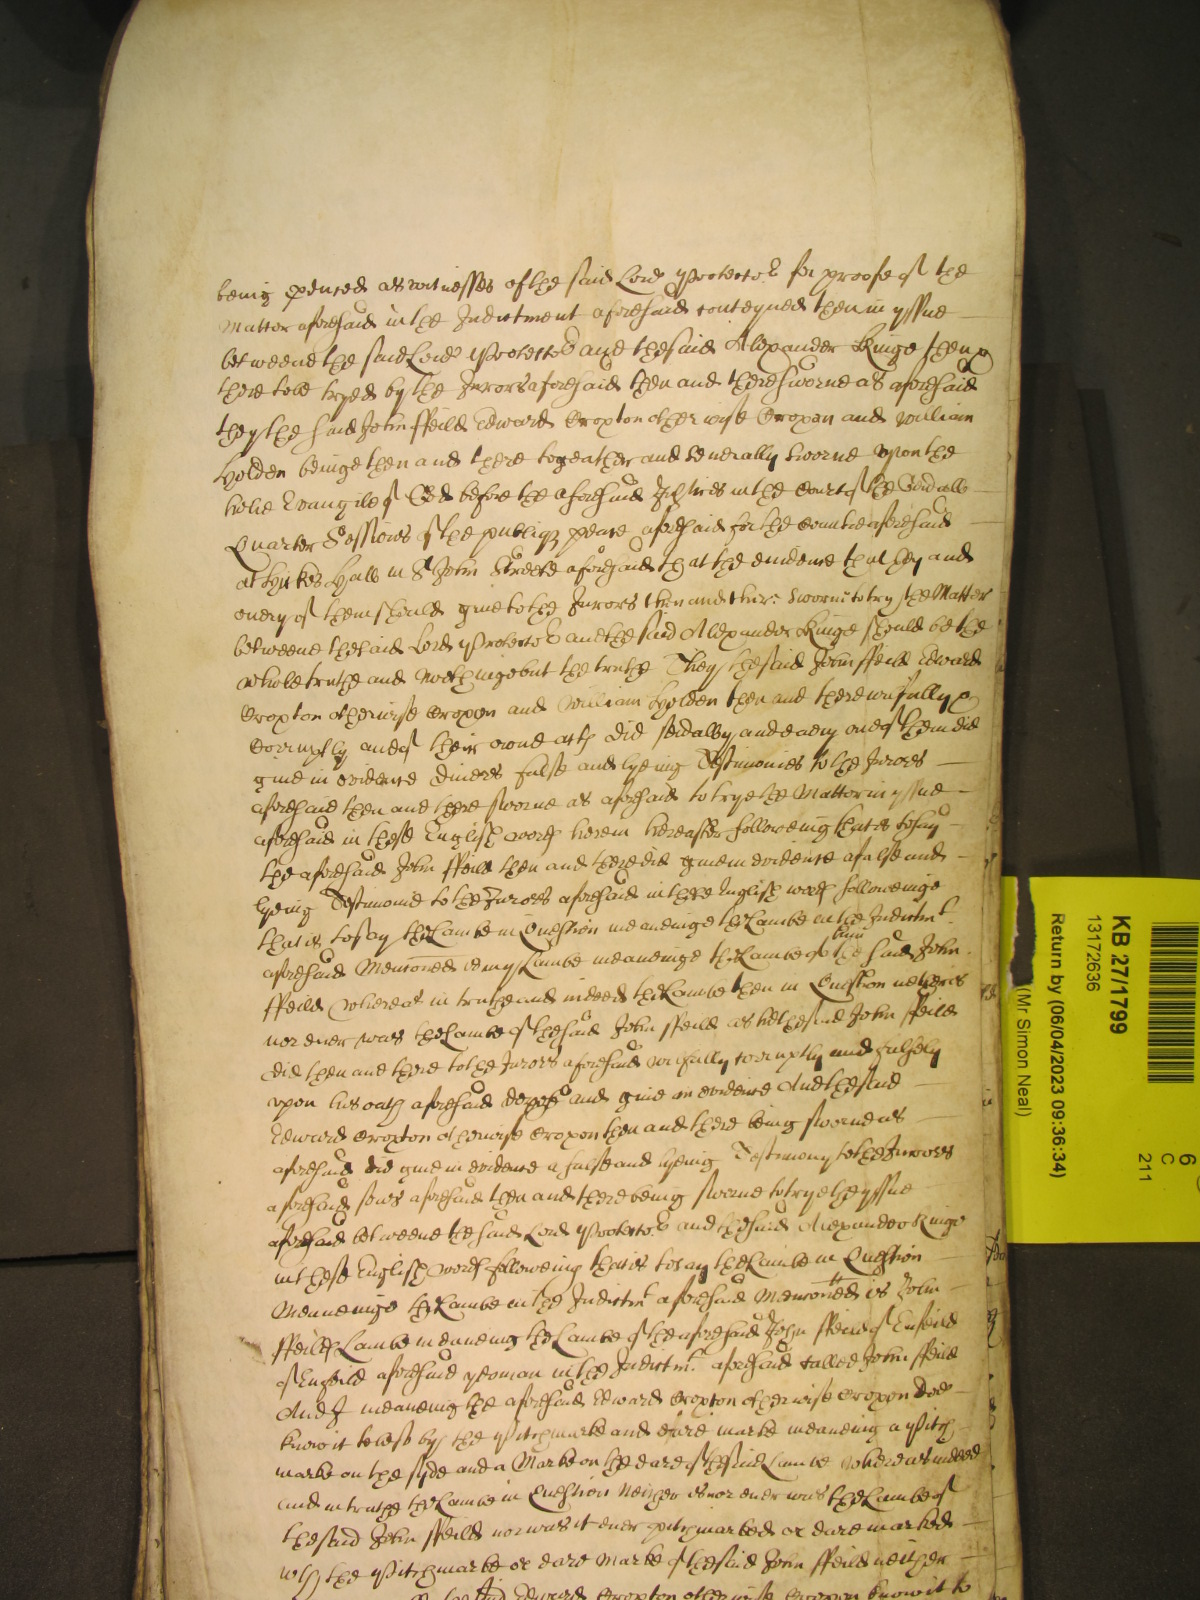 being p'duced as witnesses of the said Lord Protector for proofe of the
Matter aforesaid in the Indictment aforesaid conteyned then in yssue
betweene the said Lord Protector and the said Alexander Kinge then &
there to be tryed by the Jurors aforesaid then and there sworne as aforesaid
they the said John ffeild Edward Croxton otherwise Croxon and William
Holden beinge then and there togeather and severally sworne upon the
holie Evangile of God before the aforesaid Justices in the Court of the Gen'all
Quarter Sessions of the publiq peace aforesaid for the Countie aforesaid
at Hickes Hall in St John Streete aforesaid that the evidence that they and
every of them should give to the Jurors then and there sworne to try the Matter
betweene the said Lord Protector and the said Alexander Kinge should be the
whole truthe and nothinge but the truthe They the said John ffeild Edward
Croxton otherwise Croxon and William Holden then and there wilfully &
corruptly and of their owne acts did sev'ally and every one of them did
give in evidence divers false and lyeing Testimonies to the Jurors
aforesaid then and there sworne as aforesaid to trye the Matter in yssue
aforesaid in these English words herein hereafter followeing that is to say
the aforesaid John ffeild then and there did give in evidence a false and
lyeing Testimonie to the Jurors aforesaid in these English words followeinge
that is to say the Lambe in Question meaneinge the Lambe in the Indictmt
aforesaid Menconed is my Lambe meaneinge the Lambe of him the said John
ffeild Whereas in truthe and indeed the Lambe then in Question neither is
nor ever was the Lambe of the said John ffeild as he the said John ffeild
did then and there to the Jurors aforesaid wilfully corruptly and falsely
upon his oath aforesaid depose and give in evidence And the said
Edward Croxton otherwise Croxon then and there being sworne as
aforesaid did give in evidence a false and lyeing Testimony to the Jurors
aforesaid soe as aforesaid then and there being sworne to trye the yssue
aforesaid betweene the said Lord Protector and the said Alexander Kinge
in these English words followeing that is to say the Lambe in Question
Meaneinge the Lambe in the Indictmt aforesaid Menconed is John
ffeilds Lambe meaneing the Lambe of the aforesaid John ffeild of Enfeild
of Enfeild aforesaid yeoman in the Indictmt aforesaid called John ffeild
And I meaneing the aforesaid Edward Croxton otherwise Croxon doe
know it to be so by the pitchmarke and eare marke meaneing a pitch
marke on the syde and a Marke on the eare of the said Lambe whereas indeed
and in truthe the Lambe in Question Neither is nor ever was the Lambe of
the said John ffeild nor was it ever pitchmarked or eare marked
with the pitchmarke or eare Marke of the said John ffeild neither
the said Edward Croxton otherwise Croxon know it to
KB 27/1799
13172636
Return by (06/04/2023 09:36:34)
(Mr Simon Neal)
6
C
211